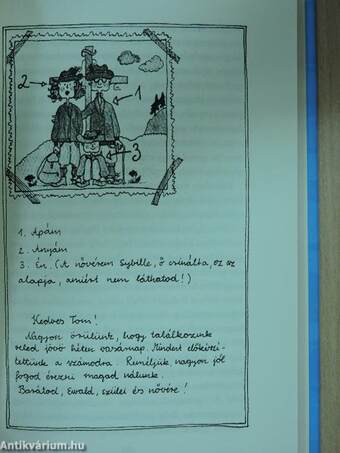 2
1
3
1. Apám
2. Anyám
3. Én. (A nővérem Sybille, ő csinálta, ez az
alapja, amiért nem láthatod!)
Kedves Tom!
Nagyon örülünk, hogy találkozunk
veled jövő héten vasárnap. Mindent előkészí-
tettünk a számodra. Reméljük, nagyon jól
fogod érezni magad nálunk.
Barátod, Ewald, szülei és nővére!
Antikvárium.hu